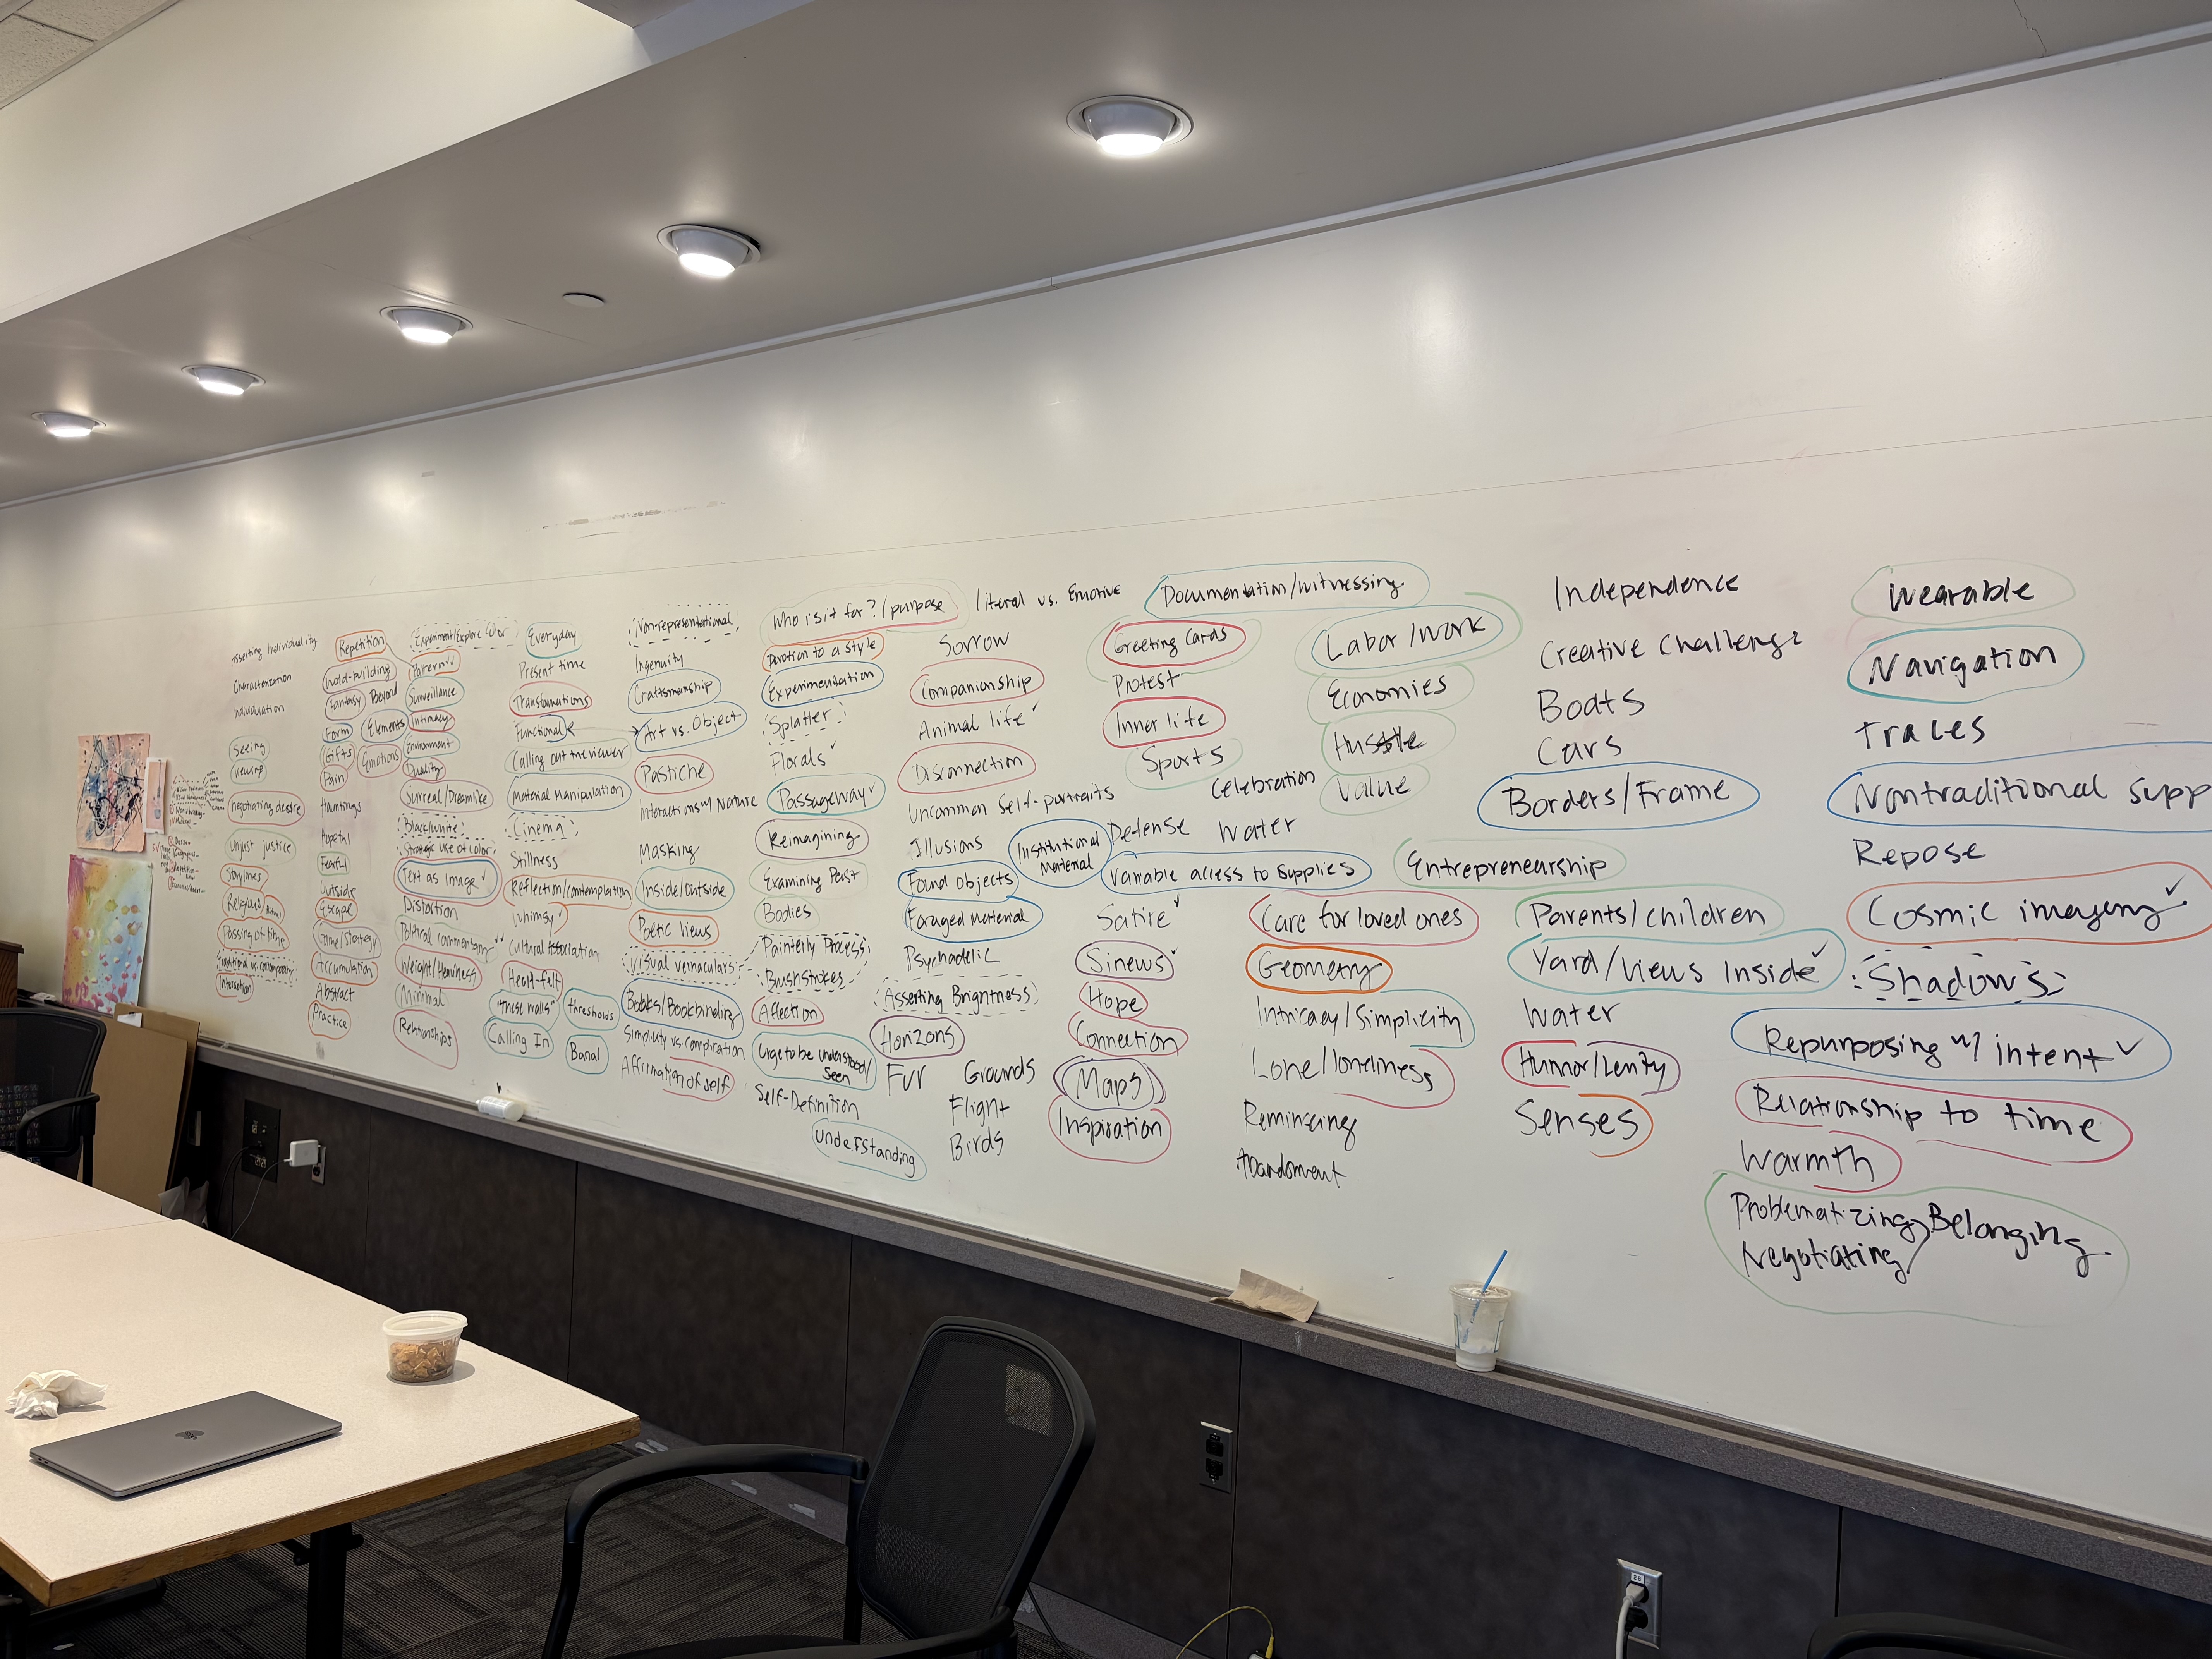 Asserting Individuality
Characterization
Individuation
Seeing
negotiating desire
Unjust justice
Storylines
Religion/Ritual
Passing of time
Traditional vs. contemporary
Interaction
Repetition
World-building
Fantasy
Beyond
Form
Elements
Gifts
Emotions
Pain
Hauntings
Hopeful
Fearful
Outside
Escape
Crime/Strategy
Accumulation
Abstract
Practice
Experiment/Explore Color
Pattern
Surveillance
Intimacy
Environment
Duality
Surreal/Dreamlike
Black/white
Strategic use of color
Text as image
Distortion
Political commentary
Weight/Heaviness
Minimal
Relationships
Everyday
Present time
Transformations
Functional
Calling out the viewer
Material Manipulation
Cinema
Stillness
Reflection/contemplation
Whimsy
Cultural Association
Heart-felt
"These walls"
thresholds
Calling In
Banal
Non-representational
Ingenuity
Craftsmanship
Art vs. Object
Pastiche
Interactions w/ Nature
Masking
Inside/outside
Poetic views
Visual vernaculars
Books/Bookbinding
Simplicity vs. complication
Affirmation of self
Who is it for?/purpose
Devotion to a style
Experimentation
Splatter
Florals
Passageway
Reimagining
Examining Past
Bodies
Painterly Process
Brushstrokes
Affection
Urge to be understood/
Seen
Self-Definition
Understanding
Literal vs. Emotive
Sorrow
Companionship
Animal life
Disconnection
Uncommon Self-portraits
Illusions
Institutional
Material
Found Objects
Foraged Material
Psychadelic
Asserting Brightness
Horizons
Fur
Grounds
Flight
Birds
Documentation/witnessing
Greeting Cards
Protest
Inner life
Sports
Celebration
Defense
Water
Variable access to Supplies
Satire
Sinews
Hope
Connection
Maps
Inspiration
Labor/Work
Economies
Hustle
Value
Entrepreneurship
Care for loved ones
Geometry
Intricacy/Simplicity
Lone/loneliness
Reminiscing
Abandonment
Independence
Creative Challenge
Boats
Cars
Borders/Frame
Parents/children
Yard/Views Inside
Water
Humor/Levity
Senses
Wearable
Navigation
Traces
Nontraditional Supp
Repose
Cosmic imagery
Shadows
Repurposing w/ intent
Relationship to time
Warmth
Problematizing/Belonging
Negotiating